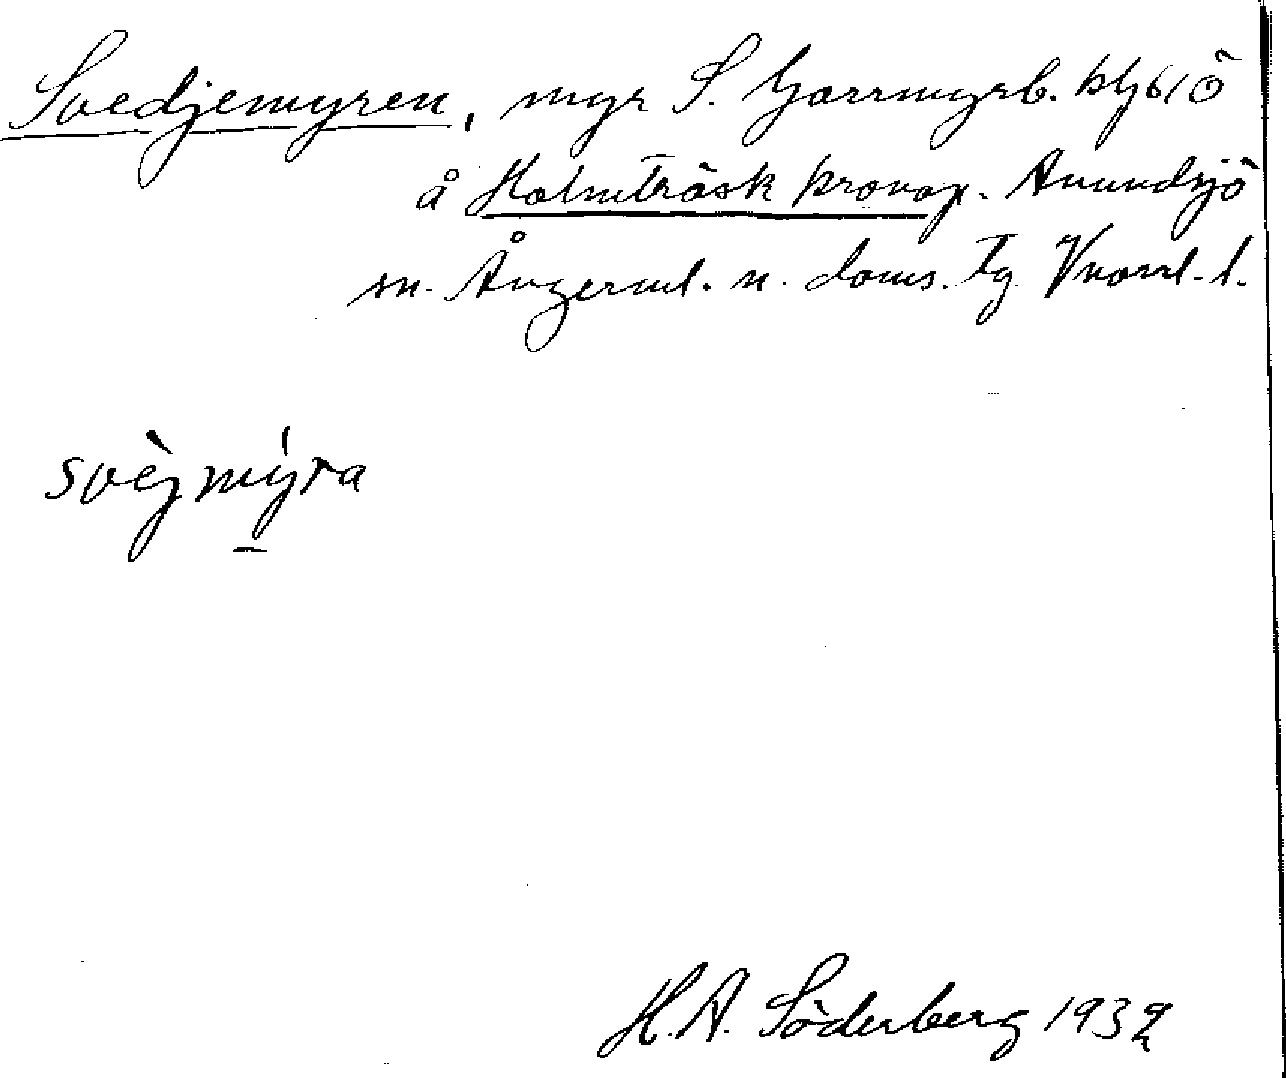 Svedjemyren, myr S. Garrmyrb. blj 61 Ö
å Holmträsk kronop. Anundsjö
sn. Ångerml. n. doms. Tg Vnorrl. l.
svèjmýra
H.A. Söderberg 1932